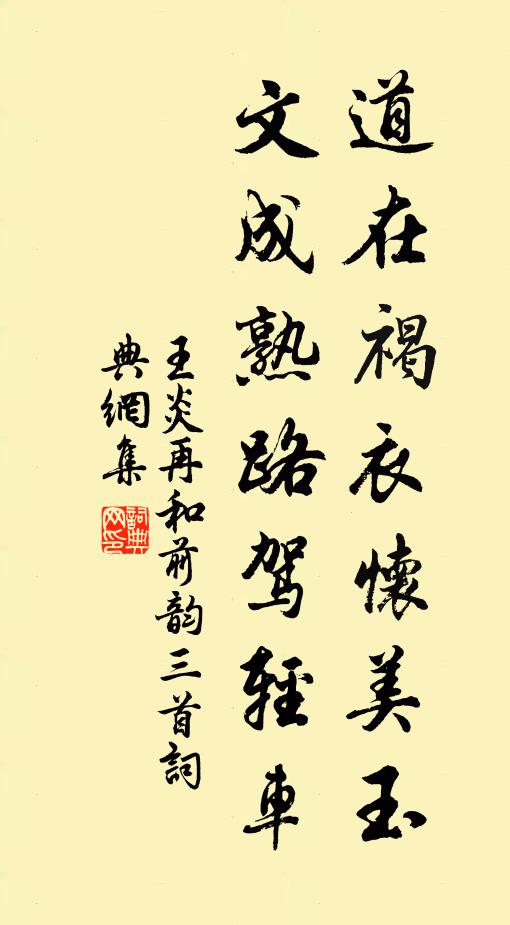 道在褐衣懷美玉
文成熟路駕輕車
王炎再和前韵三首詞
典網集
詞典
网印